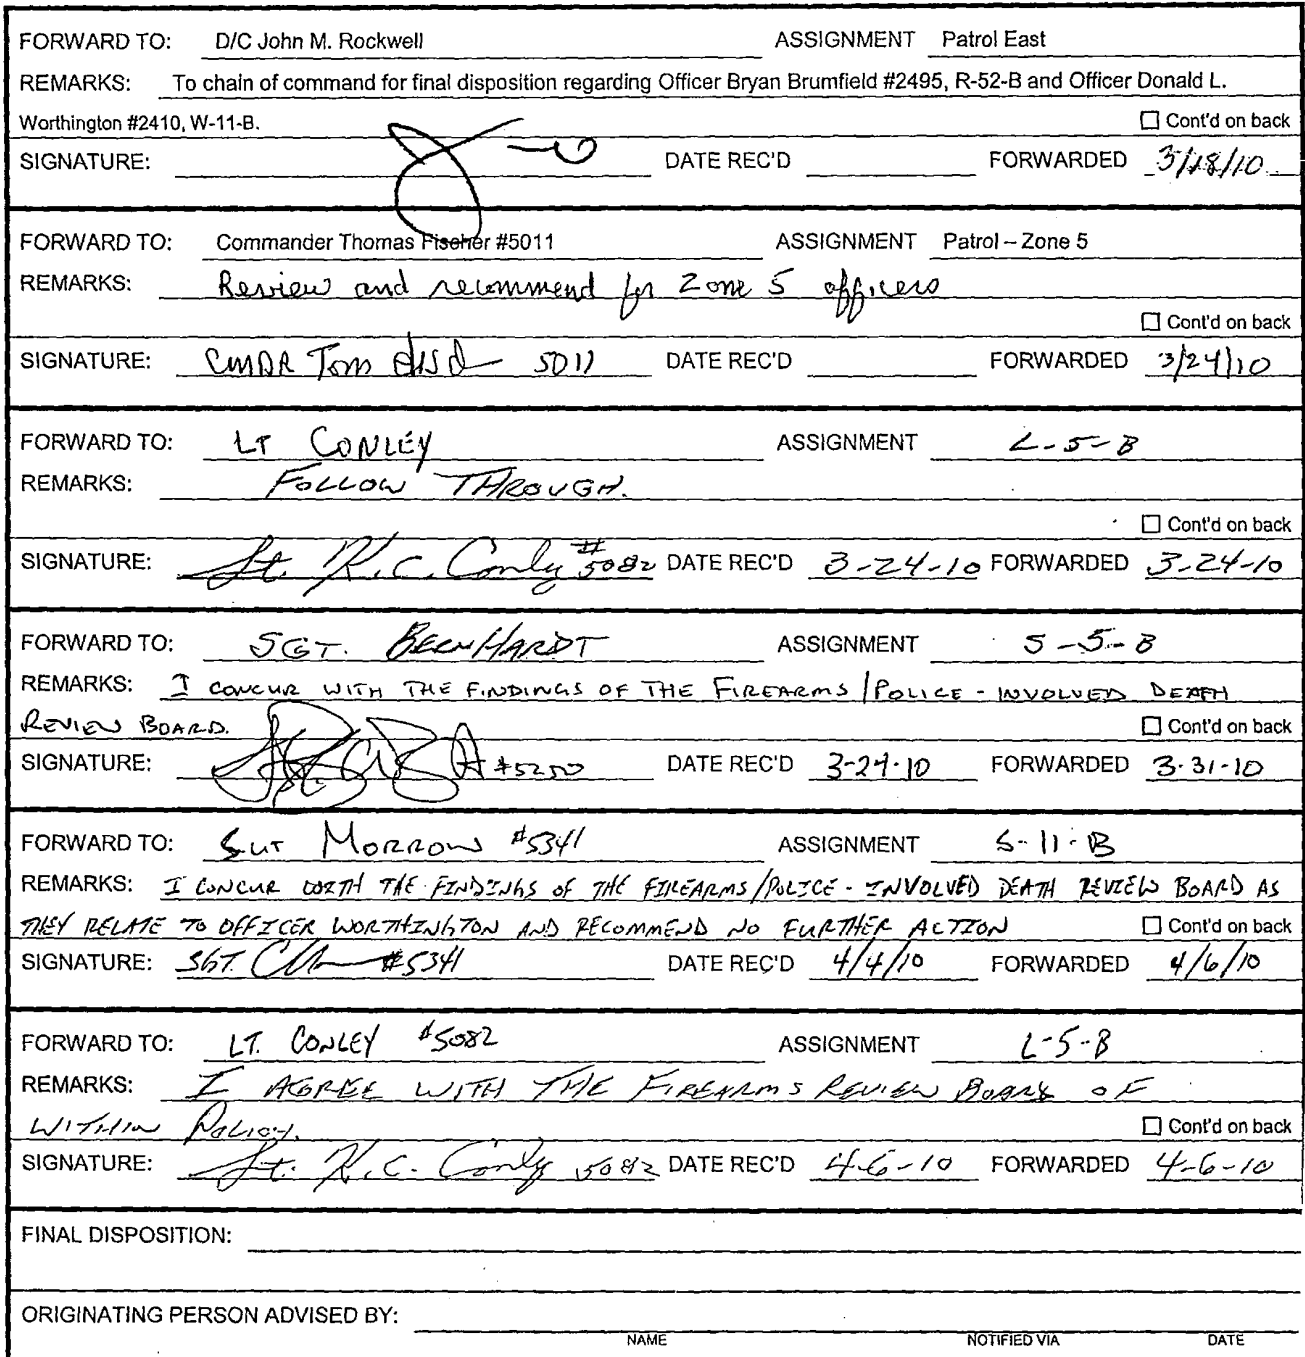 FORWARD TO: D/C John M. Rockwell ASSIGNMENT Patrol East
REMARKS: To chain of command for final disposition regarding Officer Bryan Brumfield #2495, R-52-B and Officer Donald L.
Worthington #2410, W-11-B. Cont'd on back
SIGNATURE: DATE REC'D FORWARDED 3/18/10
FORWARD TO: Commander Thomas Fischer #5011 ASSIGNMENT Patrol – Zone 5
REMARKS: Review and recommend for Zone 5 officers
Cont'd on back
SIGNATURE: CMDR Tom 5011 DATE REC'D FORWARDED 3/24/10
FORWARD TO: LT CONLEY ASSIGNMENT L-5-B
REMARKS: FOLLOW THROUGH.
Cont'd on back
SIGNATURE: Lt. K.C. Conley #5082 DATE REC'D 3-24-10 FORWARDED 3-24-10
FORWARD TO: SGT. BERNHARDT ASSIGNMENT S-5-B
REMARKS: I CONCUR WITH THE FINDINGS OF THE FIREARMS/POLICE-INVOLVED DEATH
REVIEW BOARD. Cont'd on back
SIGNATURE: #5250 DATE REC'D FORWARDED 3-31-10
FORWARD TO: SGT MORROW #5341 ASSIGNMENT S-11-B
REMARKS: I CONCUR WITH THE FINDINGS OF THE FIREARMS/POLICE-INVOLVED DEATH REVIEW BOARD AS
THEY RELATE TO OFFICER WORTHINGTON AND RECOMMEND NO FURTHER ACTION Cont'd on back
SIGNATURE: SGT. #5341 DATE REC'D 4/4/10 FORWARDED 4/6/10
FORWARD TO: LT. CONLEY #5082 ASSIGNMENT L-5-B
REMARKS: I AGREE WITH THE FIREARMS REVIEW BOARD OF
WITHIN POLICY. Cont'd on back
SIGNATURE: Lt. K.C. Conley 5082 DATE REC'D 4-6-10 FORWARDED 4-6-10
FINAL DISPOSITION:
ORIGINATING PERSON ADVISED BY:
NAME NOTIFIED VIA DATE